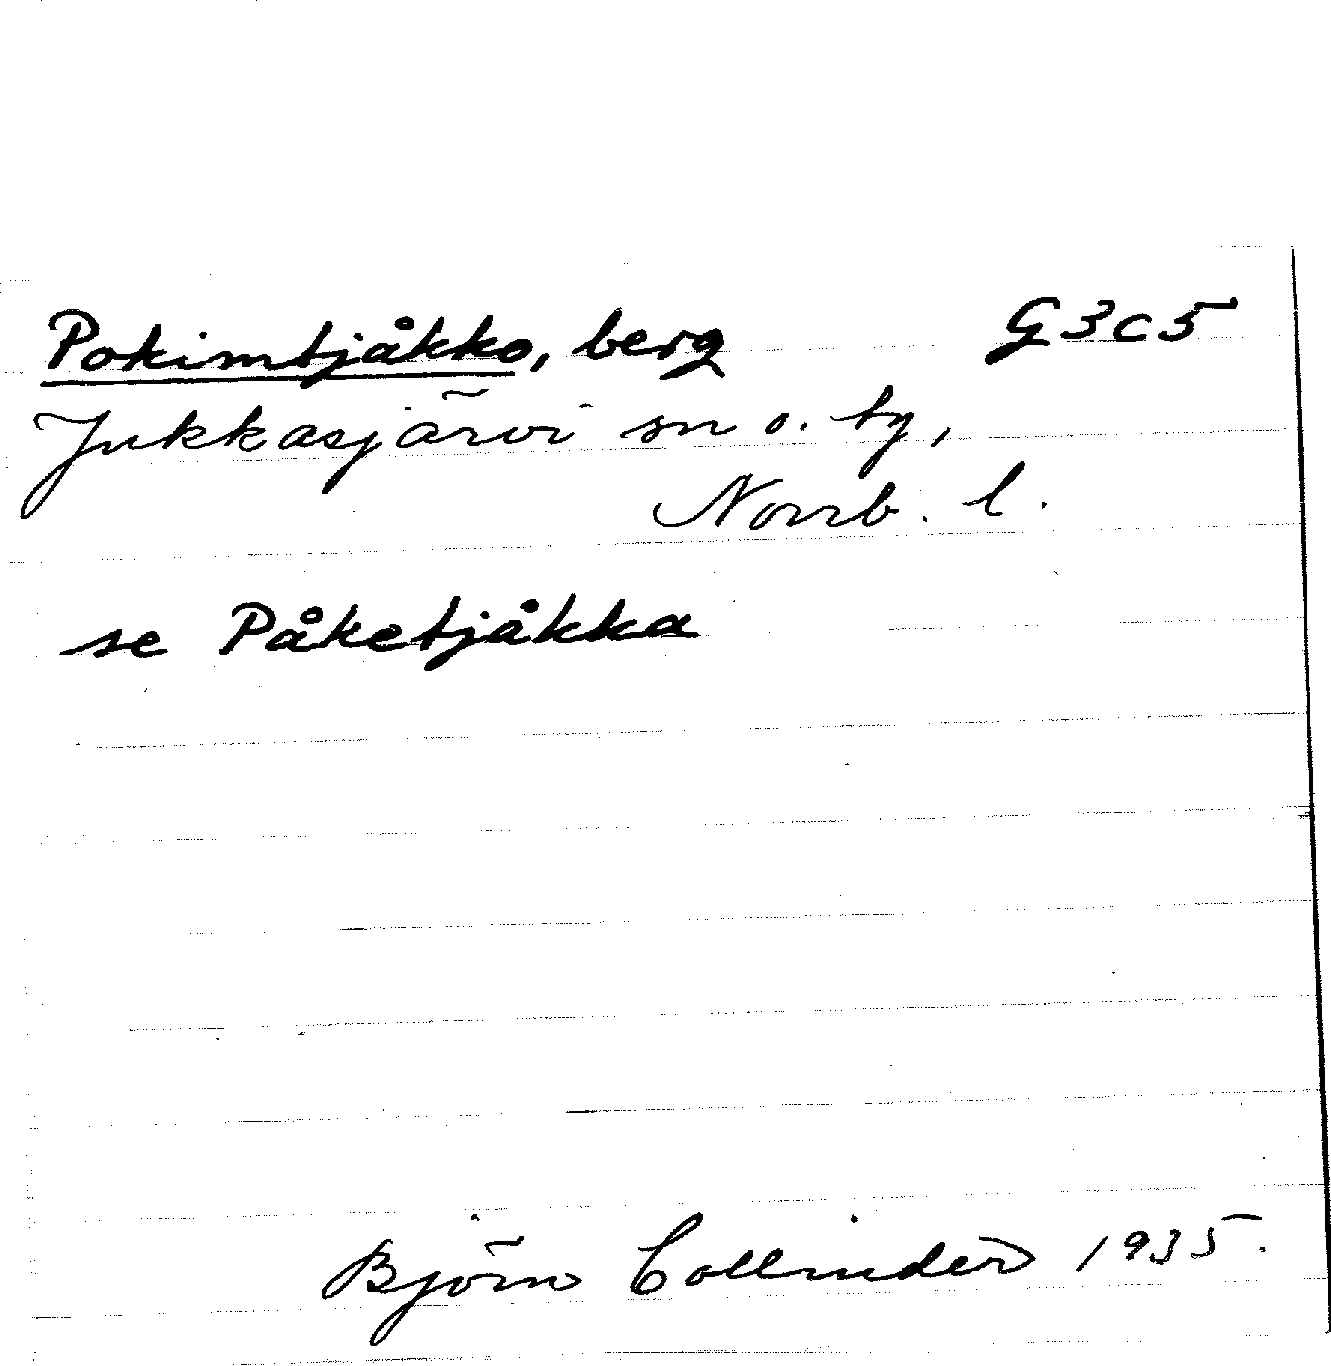 Pokimtjåkko, berg G3c5
Jukkasjärvi sn o. tg,
Norrb. l.
se Påketjåkka
Björn Collinder 1935.